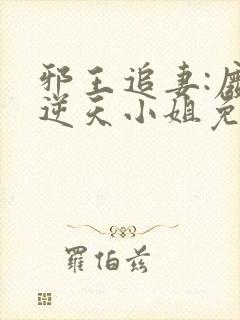 邪王追妻:
逆天小姐免
羅伯茲